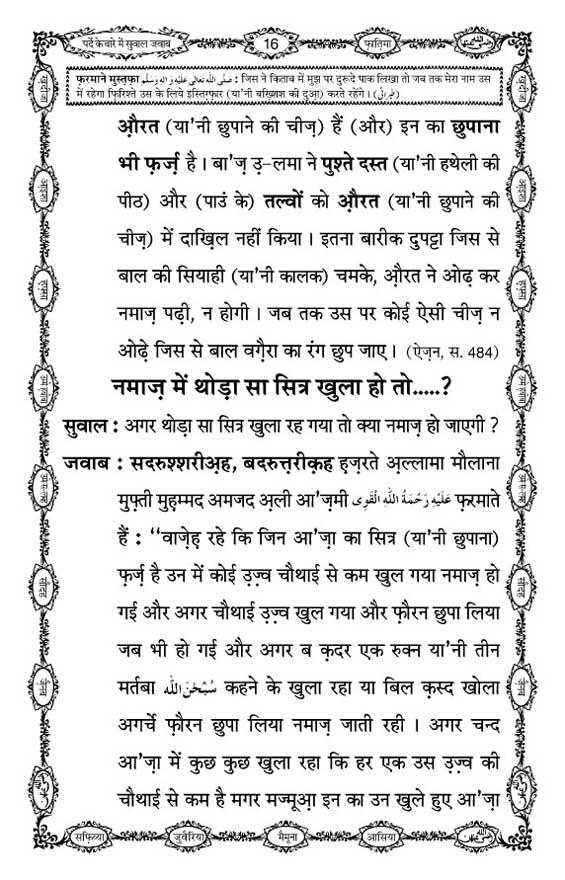 पर्दे के बारे में सुवाल जवाब
16
फ़ातिमा
फ़रमाने मुस्तफ़ा صَلَّى اللهُ تَعَالٰى عَلَيْهِ وَاٰلِهٖ وَسَلَّم : जिस ने किताब में मुझ पर दुरूदे पाक लिखा तो जब तक मेरा नाम उस
में रहेगा फ़िरिश्ते उस के लिये इस्तिग़्फ़ार (या'नी बख़्शिश की दुआ) करते रहेंगे। (طبرانی)
औ़रत (या'नी छुपाने की चीज़) हैं (और) इन का छुपाना
भी फ़र्ज़ है। बा'ज़ उ़-लमा ने पुश्ते दस्त (या'नी हथेली की
पीठ) और (पाउं के) तल्वों को औ़रत (या'नी छुपाने की
चीज़) में दाख़िल नहीं किया। इतना बारीक दुपट्टा जिस से
बाल की सियाही (या'नी कालक) चमके, औ़रत ने ओढ़ कर
नमाज़ पढ़ी, न होगी। जब तक उस पर कोई ऐसी चीज़ न
ओढ़े जिस से बाल वग़ैरा का रंग छुप जाए। (ऐज़न, स. 484)
नमाज़ में थोड़ा सा सित्र खुला हो तो.....?
सुवाल : अगर थोड़ा सा सित्र खुला रह गया तो क्या नमाज़ हो जाएगी ?
जवाब : सदरुश्शरीअ़ह, बदरुत़्त़रीक़ह ह़ज़रते अ़ल्लामा मौलाना
मुफ़्ती मुह़म्मद अमजद अ़ली आ'ज़मी عَلَيْهِ رَحْمَةُ اللهِ الْقَوِى फ़रमाते
हैं : ‘‘वाज़ेह़ रहे कि जिन आ'ज़ा का सित्र (या'नी छुपाना)
फ़र्ज़ है उन में कोई उ़ज़्व चौथाई से कम खुल गया नमाज़ हो
गई और अगर चौथाई उ़ज़्व खुल गया और फ़ौरन छुपा लिया
जब भी हो गई और अगर ब क़दर एक रुक्न या'नी तीन
मर्तबा سُبْحٰنَ الله कहने के खुला रहा या बिल क़स्द खोला
अगर्चे फ़ौरन छुपा लिया नमाज़ जाती रही। अगर चन्द
आ'ज़ा में कुछ कुछ खुला रहा कि हर एक उस उ़ज़्व की
चौथाई से कम है मगर मज्मूआ़ इन का उन खुले हुए आ'ज़ा
सफ़िय्या
जुवैरिया
मैमूना
आसिया